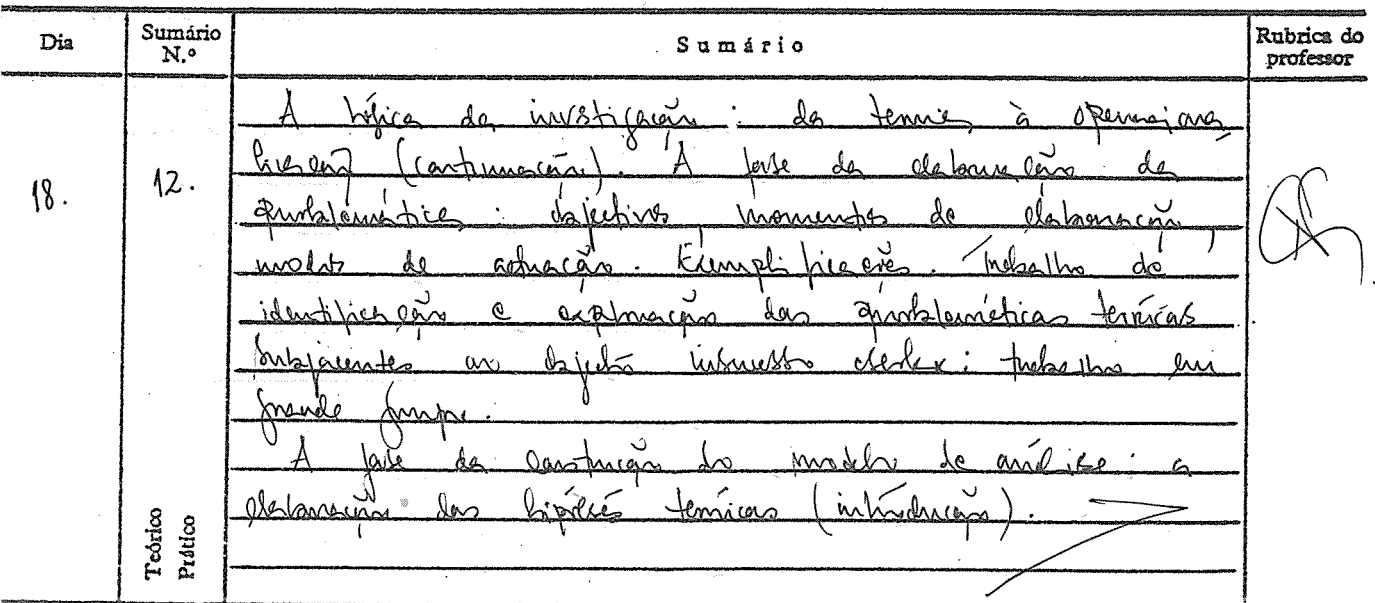 Dia
Sumário N.º
Sumário
Rubrica do professor
18.
12.
A lógica da investigação: da teoria à operaciona
lização (continuação). A fase da elaboração da
problemática: objectivos, momentos de elaboração,
modos de actuação. Exemplificações. Trabalho de
identificação e exploração das problemáticas teóricas
subjacentes ao objecto insucesso escolar: trabalho em
grande grupo.
A fase da construção do modelo de análise: a
elaboração das hipóteses teóricas (introdução).
Teórico
Prático